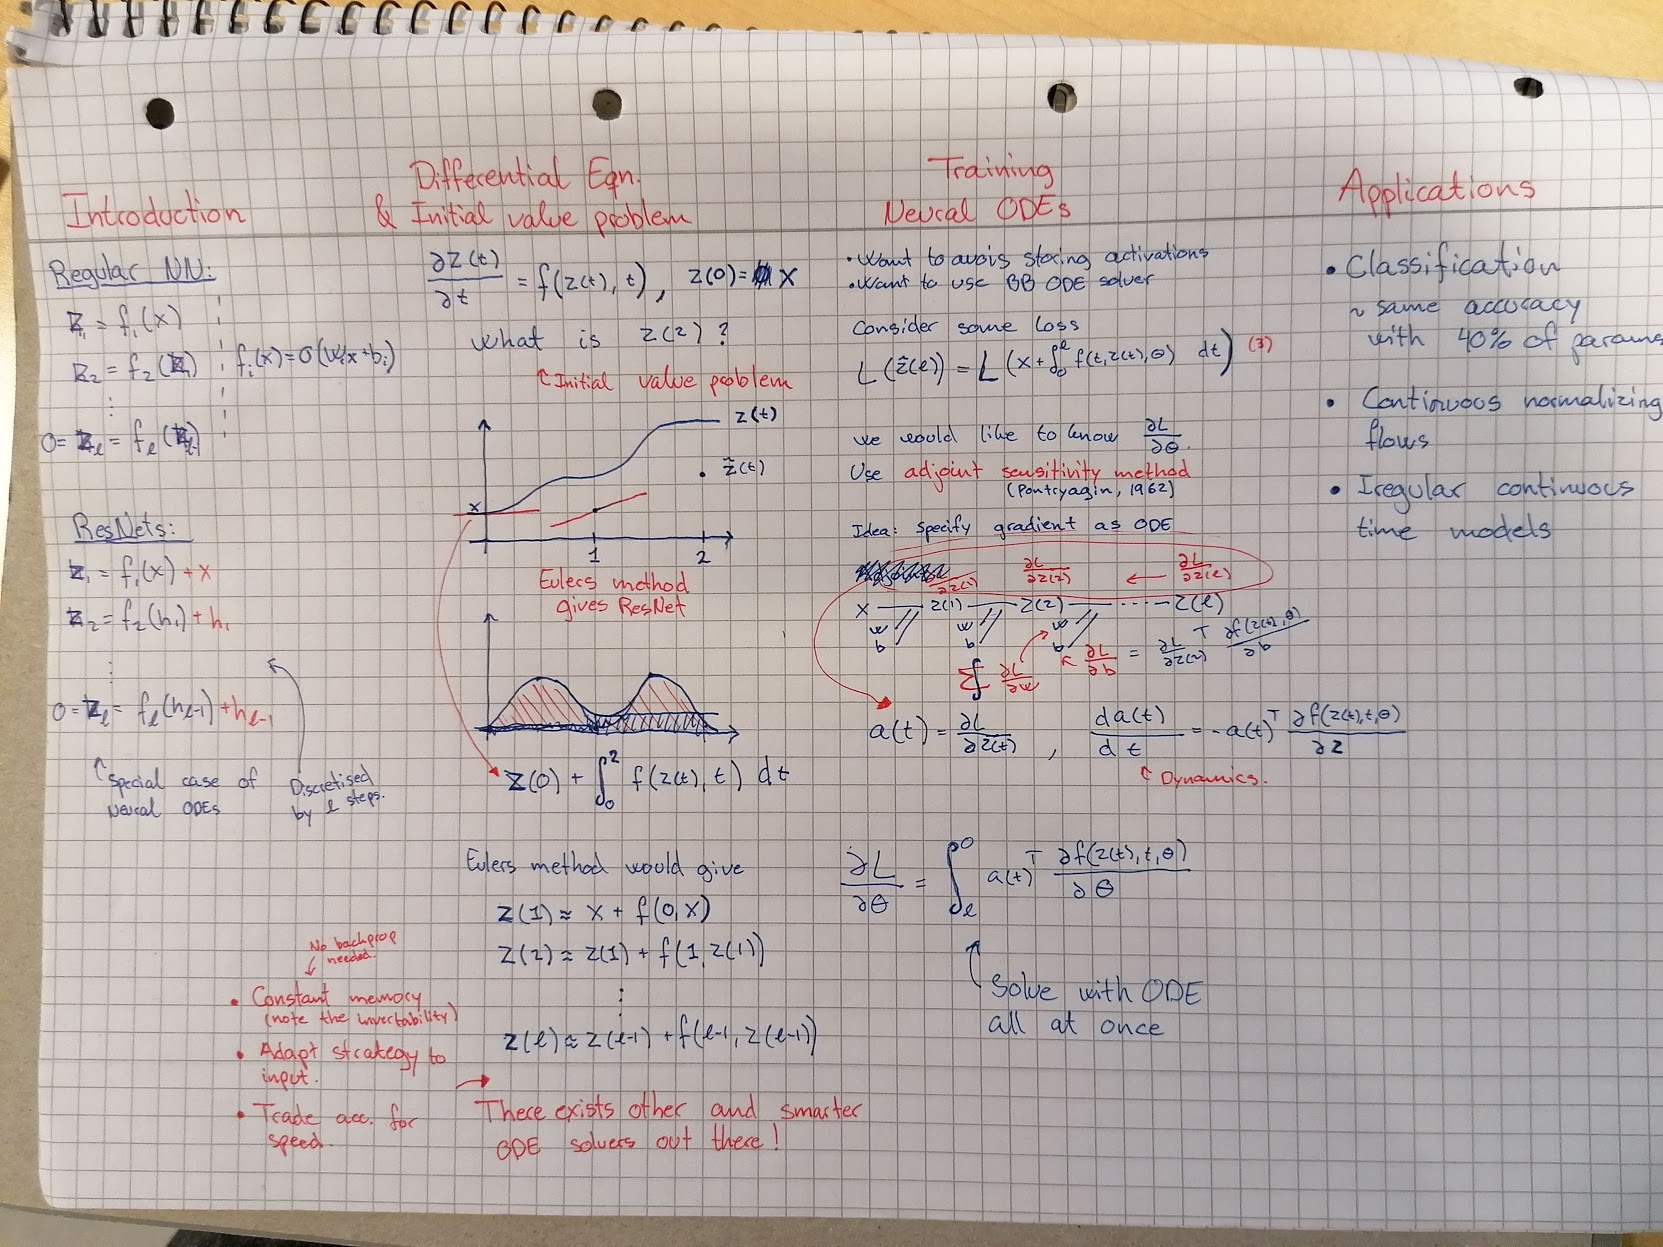 Introduction
Regular NN:
z₁ = f₁(x)
z₂ = f₂(z₁)
⋮
0= z_ℓ = f_ℓ(z_ℓ-1)
f_i(x)=σ(W_ix+b_i)
ResNets:
z₁ = f₁(x) + x
z₂ = f₂(h₁) + h₁
⋮
0= z_ℓ = f_ℓ(h_ℓ-1) + h_ℓ-1
Special case of
Neural ODEs
Discretised
by ℓ steps.
No backprop
needed.
• Constant memory
(note the invertability)
• Adapt strategy to
input.
• Trade acc. for
speed.
Differential Eqn.
& Initial value problem
∂z(t)/∂t = f(z(t), t), z(0)= x
What is z(2)?
Initial value problem
z(t)
ẑ(t)
x
1 2
Eulers method
gives ResNet
z(0) + ∫₀² f(z(t), t) dt
Eulers method would give
z(1) ≈ x + f(0,x)
z(2) ≈ z(1) + f(1, z(1))
⋮
z(ℓ) ≈ z(ℓ-1) + f(ℓ-1, z(ℓ-1))
→
There exists other and smarter
ODE solvers out there!
Training
Neural ODEs
• Want to avois storing activations
• Want to use BB ODE solver
Consider some loss
L(ẑ(ℓ)) = L(x+∫₀^ℓ f(t,z(t),θ) dt) (3)
we would like to know ∂L/∂θ.
Use adjoint sensitivity method
(Pontryagin, 1962)
Idea: specify gradient as ODE
∂L/∂z(2) ← ∂L/∂z(ℓ)
x — z(1) — z(2) — ···· — z(ℓ)
w w w
b b b
∂L/∂w
∂L/∂b = ∂L/∂z(2)ᵀ ∂f(z(2),θ)/∂b
a(t) = ∂L/∂z(t) , da(t)/dt = -a(t)ᵀ ∂f(z(t),t,θ)/∂z
Dynamics.
∂L/∂θ = ∫_ℓ⁰ a(t)ᵀ ∂f(z(t),t,θ)/∂θ
Solve with ODE
all at once
Applications
• Classification
~ same accuracy
with 40% of params
• Continuous normalizing
flows
• Iregular continuous
time models